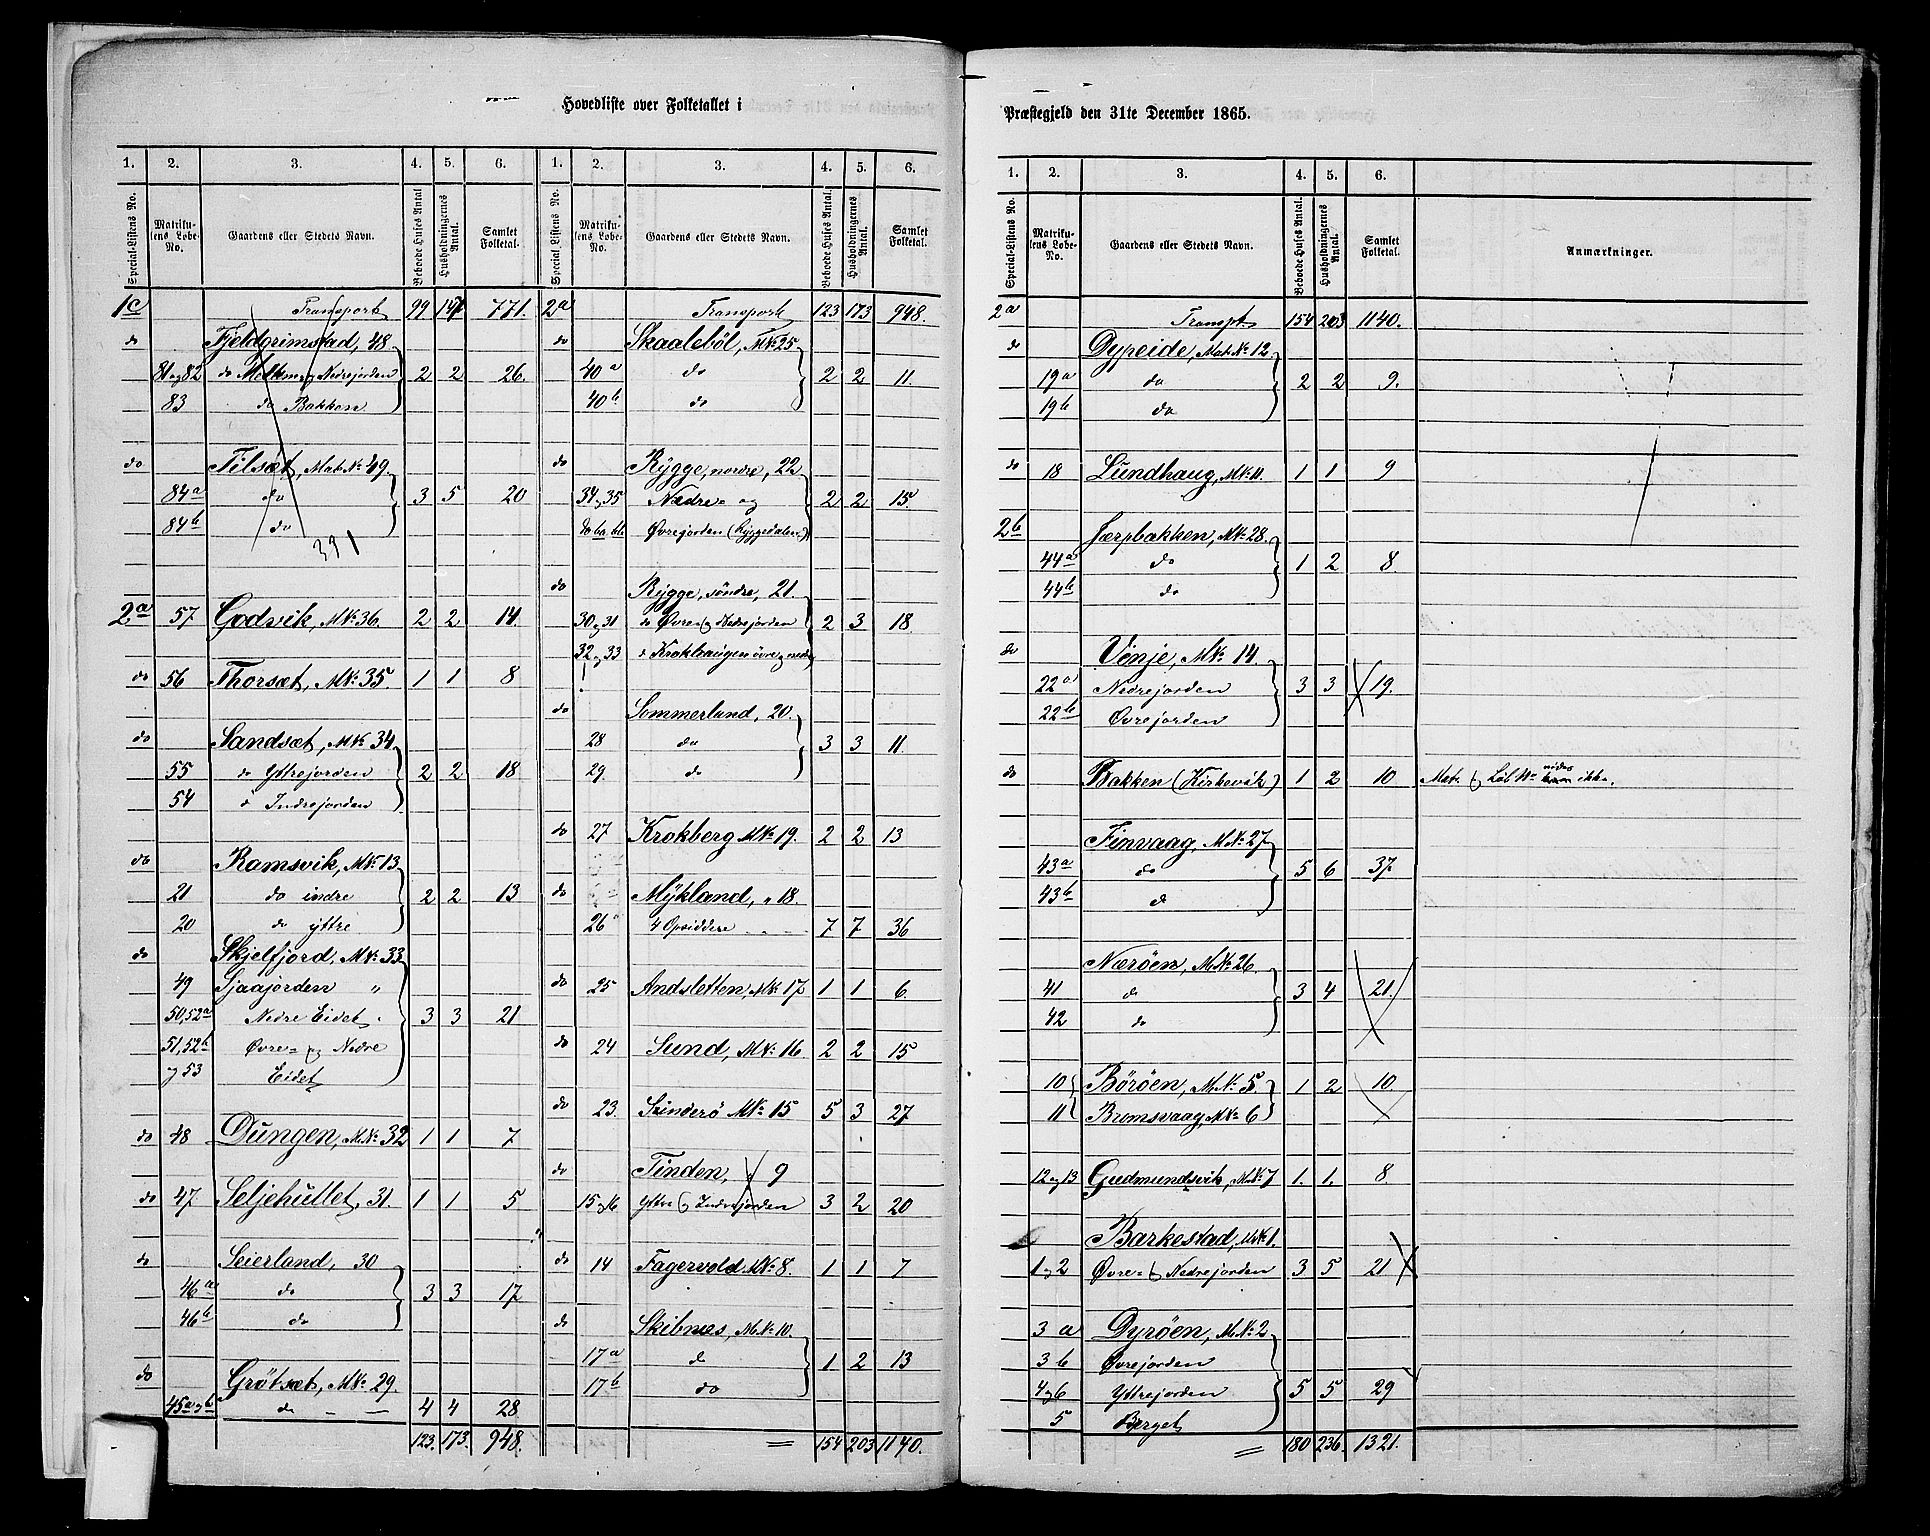 Hovedliste over Folketallet i
Præstegjeld den 31te December 1865.
1. 2. 3. 4. 5. 6.
Special-Listens No. Matrikulens Løbe-No. Gaardens eller Stedets Navn. Beboede Huses Antal Husholdningernes Antal. Samlet Folketal.
1c Transport 99 141 771.
do Fjeldgrimstad, 48
81 og 82 do og Nedrejorden 2 2 26
83 do Bakken
do Tilsæt, Mat No 49.
84a do 3 5 20
84b do
391
2a 57 Godvik, M No 36. 2 2 14.
do 56 Thorsæt, M No 35. 1 1 8
do Sandsæt, M No 34.
55 do Yttrejorden 2 2 18
54 d Indrejorden
do Ramsvik, M No 13
21 do indre 2 2 13
20 do yttre
do Skjelfjord, M No 33
49 Sjaajorden "
50, 52a Nedre Eidet 3 3 21
51, 52b Øvre- og Nedre
og 53 Eidet
do 48 Dungen, M No 32 1 1 7
do 47. Seljehullet, 31. 1 1 5
do Seierland, 30
46a do 3 3 17
46b do
do Grøtsæt, M No 29.
45a og b do 4 4 28
123. 173. 948.
1. 2. 3. 4. 5. 6.
Special Listens No. Matrikulens Løbe-No. Gaardens eller Stedets Navn. Beboede Huses Antal. Husholdningernes Antal. Samlet Folketal.
2a Transport 123 173 948.
do Skaalebøl, M No 25
40a do 2 2 11.
40b do
do Rygge, nordre, 22
34 og 35 Nedre- og 2 2 15.
Øvrejorden (Ryggedalen)
do Rygge, søndre, 21.
30 og 31 do Øvre- og Nedrejorden 2 3 18
32 og 33 d Krokhaugen øvre og nedre
do Sommerland, 20.
28 do 3 3 11.
29. do
do 27 Krokberg M No 19. 2 2 13
do Mykland, " 18.
26 4 Opsiddere 7 7 36
do 25 Andsletten, M No 17 1 1 6.
do 24 Sund, M No 16 2 2 15
do 23. M No 15 5 3 27
do Tinden, 9
15 og 16 Yttre og Indrejorden 3 2 20
do 14 Fagervold M No 8. 1 1 7
do Skibnes, M No 10.
17a do 1 2 13
17b do
154 203 1140.
1. 2. 3. 4. 5. 6.
Special-Listens No. Matrikulens Løbe-No. Gaardens eller Stedets Navn. Beboede Huses Antal. Husholdningernes Antal. Samlet Folketal. Anmærkninger.
2a Transpt 154 203 1140.
do Dypeide, Mat No 12
19a do 2 2 9.
19b do
do 18 Lundhaug, M No 11. 1 1 9
2b Jærpbakken, M No 28.
44a do 1 2 8.
44b do
do Vinje, M No 14.
22a Nedrejorden 3 3 19.
22b Øvrejorden
do Bakken (Kirkevik) 1 2 10 Mat. og Løb No vides ikke.
Finvaag, M No 27
43a do 5 6 37.
43b d
Nærøen, M No 26
41 do 3 4 21.
42 do
10 Børøen, M No 5. 1 2 10.
11 Bromsvaag, M No 6
12 og 13 Gudmundsvik, M No 7 1. 1. 8.
Barkestad, M No 1.
1 og 2 Øvre- og Nedrejorden 3 5 21
3 a Dyrøen, M No 2
3 b Øvrejorden
4 og 6 Yttrejorden 5 5 29
5 Berget
180 236. 1321.